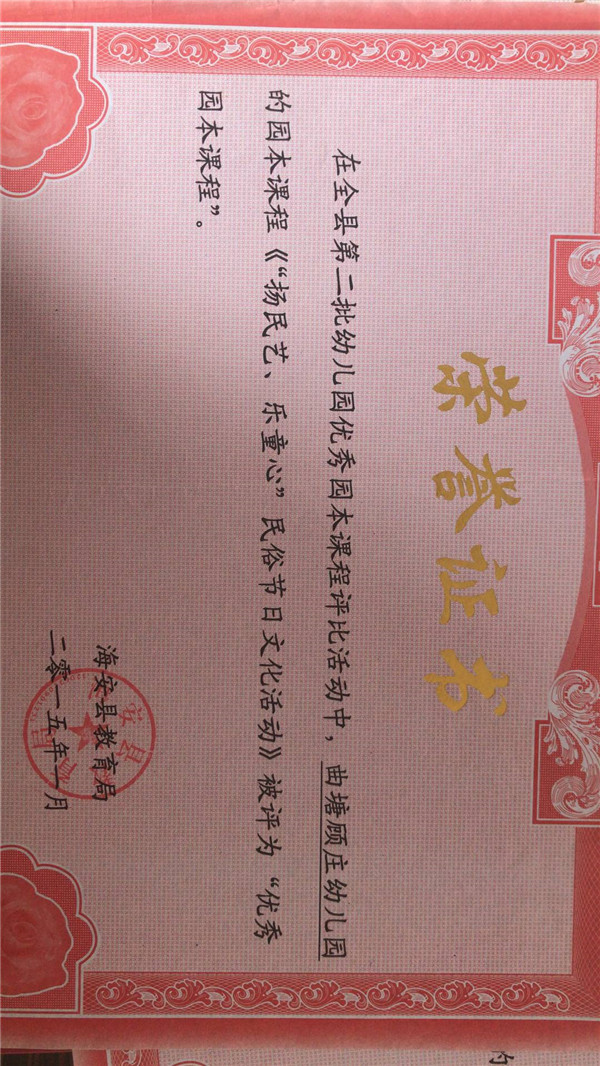 荣誉证书
在全县第二批幼儿园优秀园本课程评比活动中，曲塘顾庄幼儿园
的园本课程《“扬民艺、乐童心”民俗节日文化活动》被评为“优秀
园本课程”。
海安县教育局
二零一五年一月